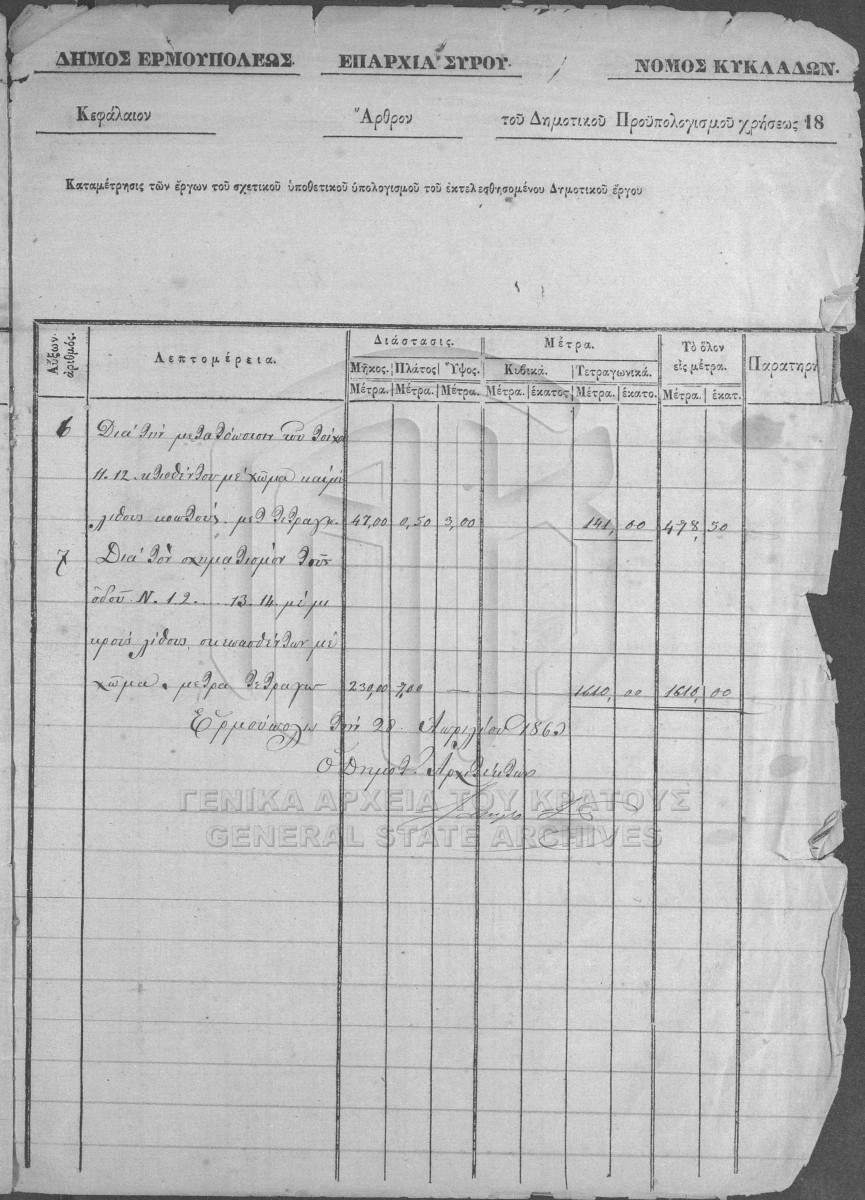 ΔΗΜΟΣ ΕΡΜΟΥΠΟΛΕΩΣ. ΕΠΑΡΧΙΑ ΣΥΡΟΥ. ΝΟΜΟΣ ΚΥΚΛΑΔΩΝ.
Κεφάλαιον Ἄρθρον τοῦ Δημοτικοῦ Προϋπολογισμοῦ χρήσεως 18
Καταμέτρησις τῶν ἔργων τοῦ σχετικοῦ ὑποθετικοῦ ὑπολογισμοῦ τοῦ ἐκτελεσθησομένου Δημοτικοῦ ἔργου
Αὔξων ἀριθμός. Λεπτομέρεια. Διάστασις. Μέτρα. Τὸ ὅλον εἰς μέτρα. Παρατηρή
Μῆκος. Πλάτος Ὕψος. Κυβικά. Τετραγωνικά.
Μέτρα. Μέτρα. Μέτρα. Μέτρα. ἑκατοσ Μέτρα. ἑκατο. Μέτρα. ἑκατ.
6 Διά τήν μετατόπισιν τοῦ τοίχου
11.12. κτισθέντος μέ χῶμα καί μέ
λίθους μετ τετραγω. 47,00 0,50 3,00 141, 00 478, 50
7 Διά τόν σχηματισμόν τοῦ
ὁδοῦ N. 12 ..... 13.14. μέ μι
κρούς λίθους, σκεπασθέντων μέ
χῶμα. μέτρα τετραγω 230,00 7,00 — — 1610, 00 1610, 00
Ἑρμούπολις τήν 28 Ἀπριλίου 186
Ὁ Δημοτ. Ἀρχιτέκτων
ΓΕΝΙΚΑ ΑΡΧΕΙΑ ΤΟΥ ΚΡΑΤΟΥΣ
GENERAL STATE ARCHIVES